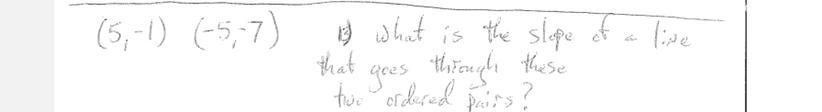 (5,-1) (-5,-7) 13) what is the slope of a line
that goes through these
two ordered pairs?